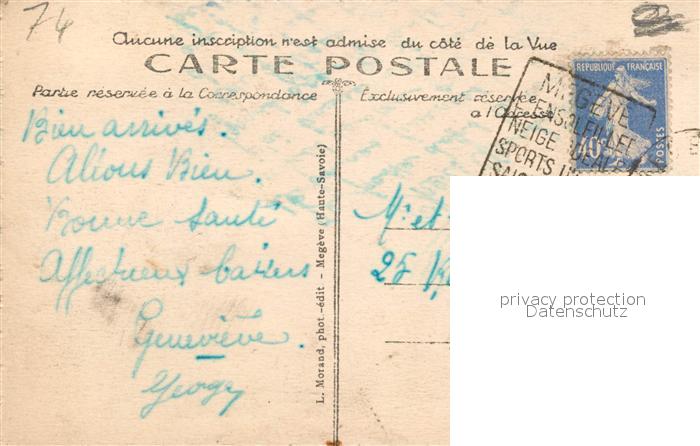 74
Aucune inscription n'est admise du côté de la Vue
CARTE POSTALE
Partie réservée à la Correspondance
Exclusivement réservée
à l'Adresse
RÉPUBLIQUE FRANÇAISE
40c
POSTES
MEGÈVE
ENSOLEILLÉE
NEIGE IDÉALE
SPORTS
Bien arrivés.
Allons Bien.
Bonne Santé
Affectueux baisers
Geneviève.
L. Morand, phot.-édit - Megève (Haute-Savoie)
Mr et
25
privacy protection
Datenschutz